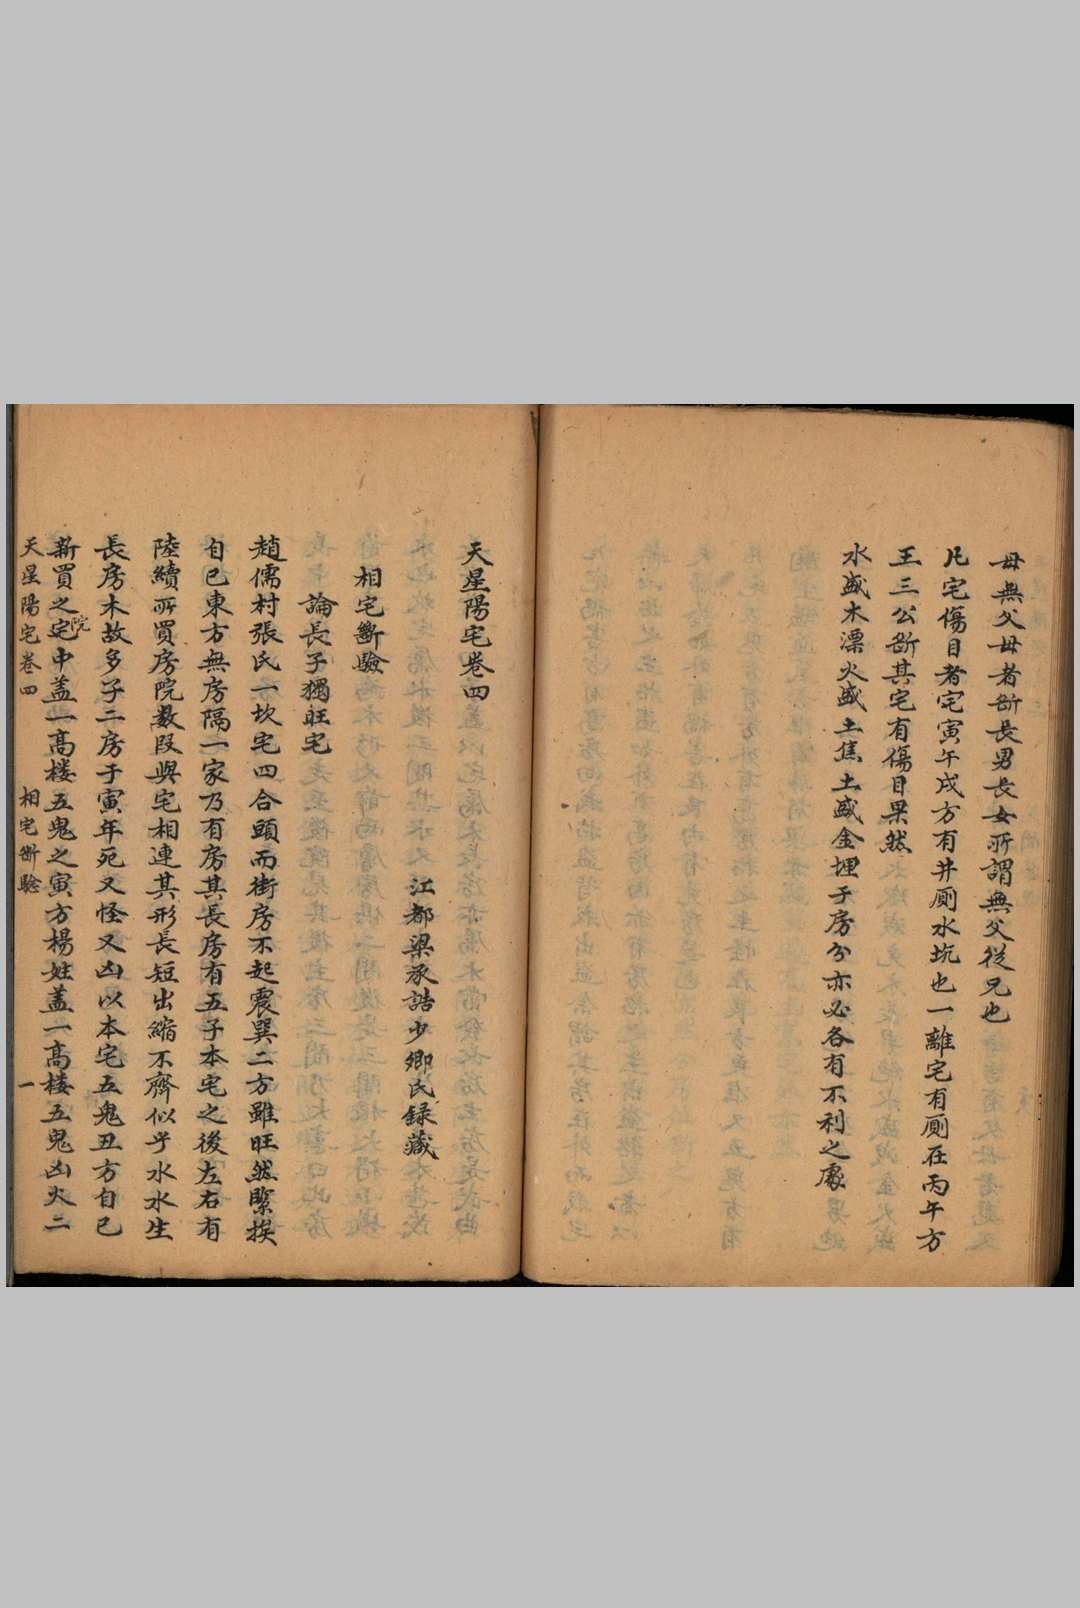 母無父母者斱長男長女所謂無父從兄也
凡宅傷目者宅寅午戌方有井厠水坑也一離宅有厠在丙午方
王三公斱其宅有傷目果然
水盛木漂火盛土焦土盛金埋于房分亦必各有不利之處
天星陽宅卷四
江都梁承誥少卿氏録藏
相宅斷驗
論長子獨旺宅
趙儒村張氏一坎宅四合頭而街房不起震巽二方雖旺然緊挨
自已東方無房隔一家乃有房其長房有五子本宅之後左右有
陸續所買房院数段與宅相連其形長短出縮不齊似乎水水生
長房木故多子二房于寅年死又怪又凶以本宅五鬼丑方自已
新買之宅院中盖一高楼五鬼之寅方楊姓盖一高楼五鬼凶火二
天星陽宅卷四 相宅斱驗 一